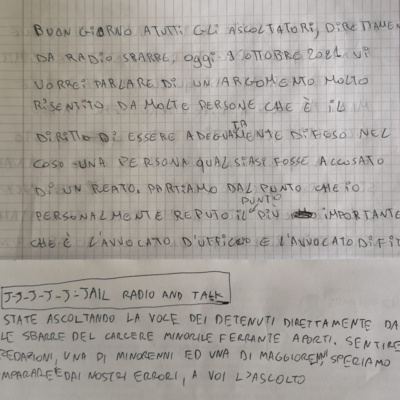 BUON GIORNO A TUTTI GLI ASCOLTATORI, DIRETTAMEN
DA RADIO SBARRE, OGGI 1 OTTOBRE 2021 VI
VORREI PARLARE DI UN ARGOMENTO MOLTO
RISENTITO DA MOLTE PERSONE CHE È IL
DIRITTO DI ESSERE ADEGUATAMENTE DIFESO NEL
CASO UNA PERSONA QUALSIASI FOSSE ACCUSATO
DI UN REATO. PARTIAMO DAL PUNTO CHE IO
PERSONALMENTE REPUTO IL PUNTO PIÙ IMPORTANTE
CHE È L'AVVOCATO D'UFFICIO E L'AVVOCATO DI FI
J-J-J-J-J-JAIL RADIO AND TALK
STATE ASCOLTANDO LA VOCE DEI DETENUTI DIRETTAMENTE DA
LE SBARRE DEL CARCERE MINORILE FERRANTE APORTI. SENTIRE
REDAZIONI, UNA DI MINORENNI ED UNA DI MAGGIORENNI, SPERIAMO
IMPARARE DAI NOSTRI ERRORI, A VOI L'ASCOLTO